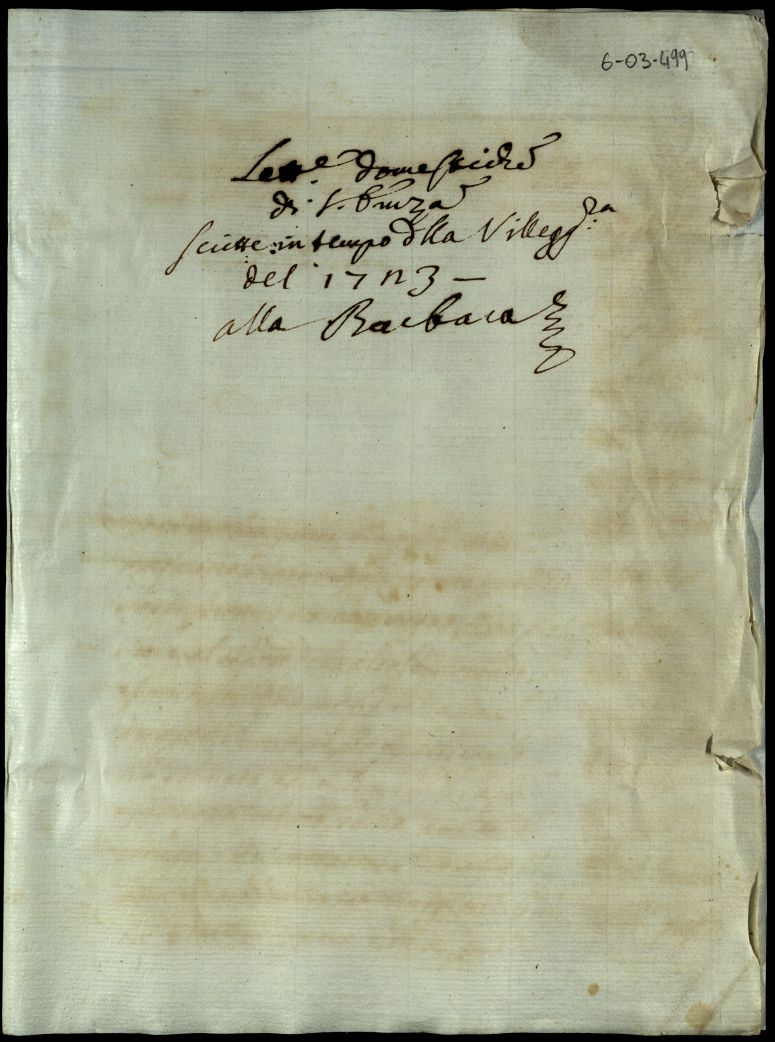 6-03-499
Lett.e domestiche
di S. Emza
scritte in tempo dlla Villegg.ra
del 1723 —
alla Barbara